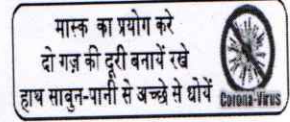 मास्क का प्रयोग करे
दो गज़ की दूरी बनायें रखे
हाथ साबुन-पानी से अच्छे से धोयें
Corona-Virus